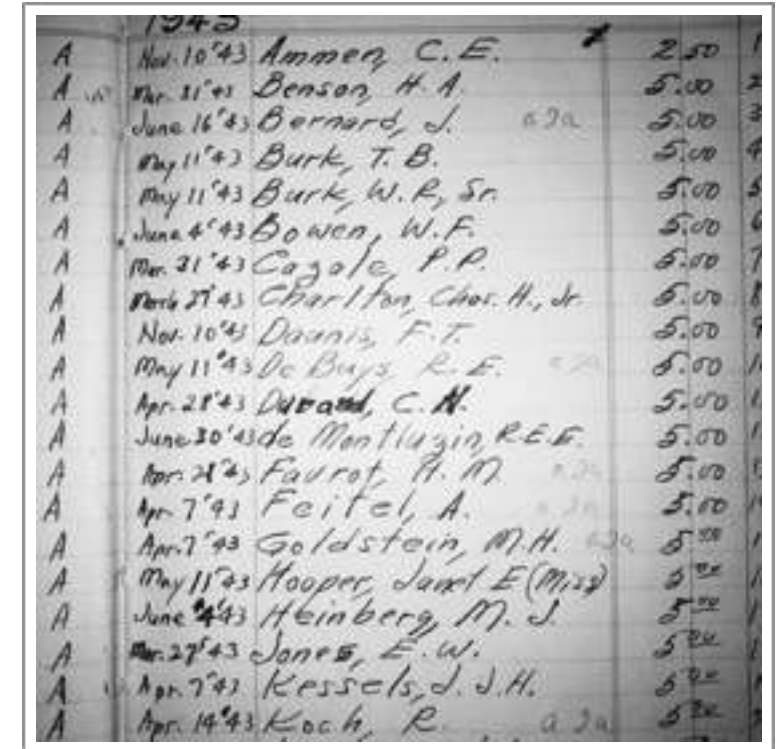 1943
A Nov. 10 '43 Ammen, C. E. 2.50 1
A Mar. 31 '43 Benson, H. A. 5.00 2
A June 16 '43 Bernard, J. a2a 5.00 3
A May 11 '43 Burk, T. B. 5.00 4
A May 11 '43 Burk, W. R, Sr. 5.00 5
A June 4 '43 Bowen, W. F. 5.00 6
A Mar. 31 '43 Cazale, P. P. 5.00 7
A March 27 '43 Charlton, Chas. H., Jr. 5.00 8
A Nov. 10 '43 Daunis, F. T. 5.00 9
A May 11 '43 De Buys, R. E. a2a 5.00 1
A Apr. 28 '43 Durand, C. N. 5.00 1
A June 30 '43 de Montluzin, R.E.E. 5.00 1
A Apr. 21 '43 Favrot, H. M. a2a 5.00
A Apr. 7 '43 Feitel, A. a2a 5.00 1
A Apr. 7 '43 Goldstein, M. H. a2a 5.00 1
A May 11 '43 Hooper, Janet E (Miss) 5.00 1
A June 4 '43 Heinberg, M. J. 5.00 1
A Mar. 27 '43 Jones, E. W. 5.00 1
A Apr. 7 '43 Kessels, J. J. H. 5.00 1
A Apr. 14 '43 Koch, R. a2a 5.00